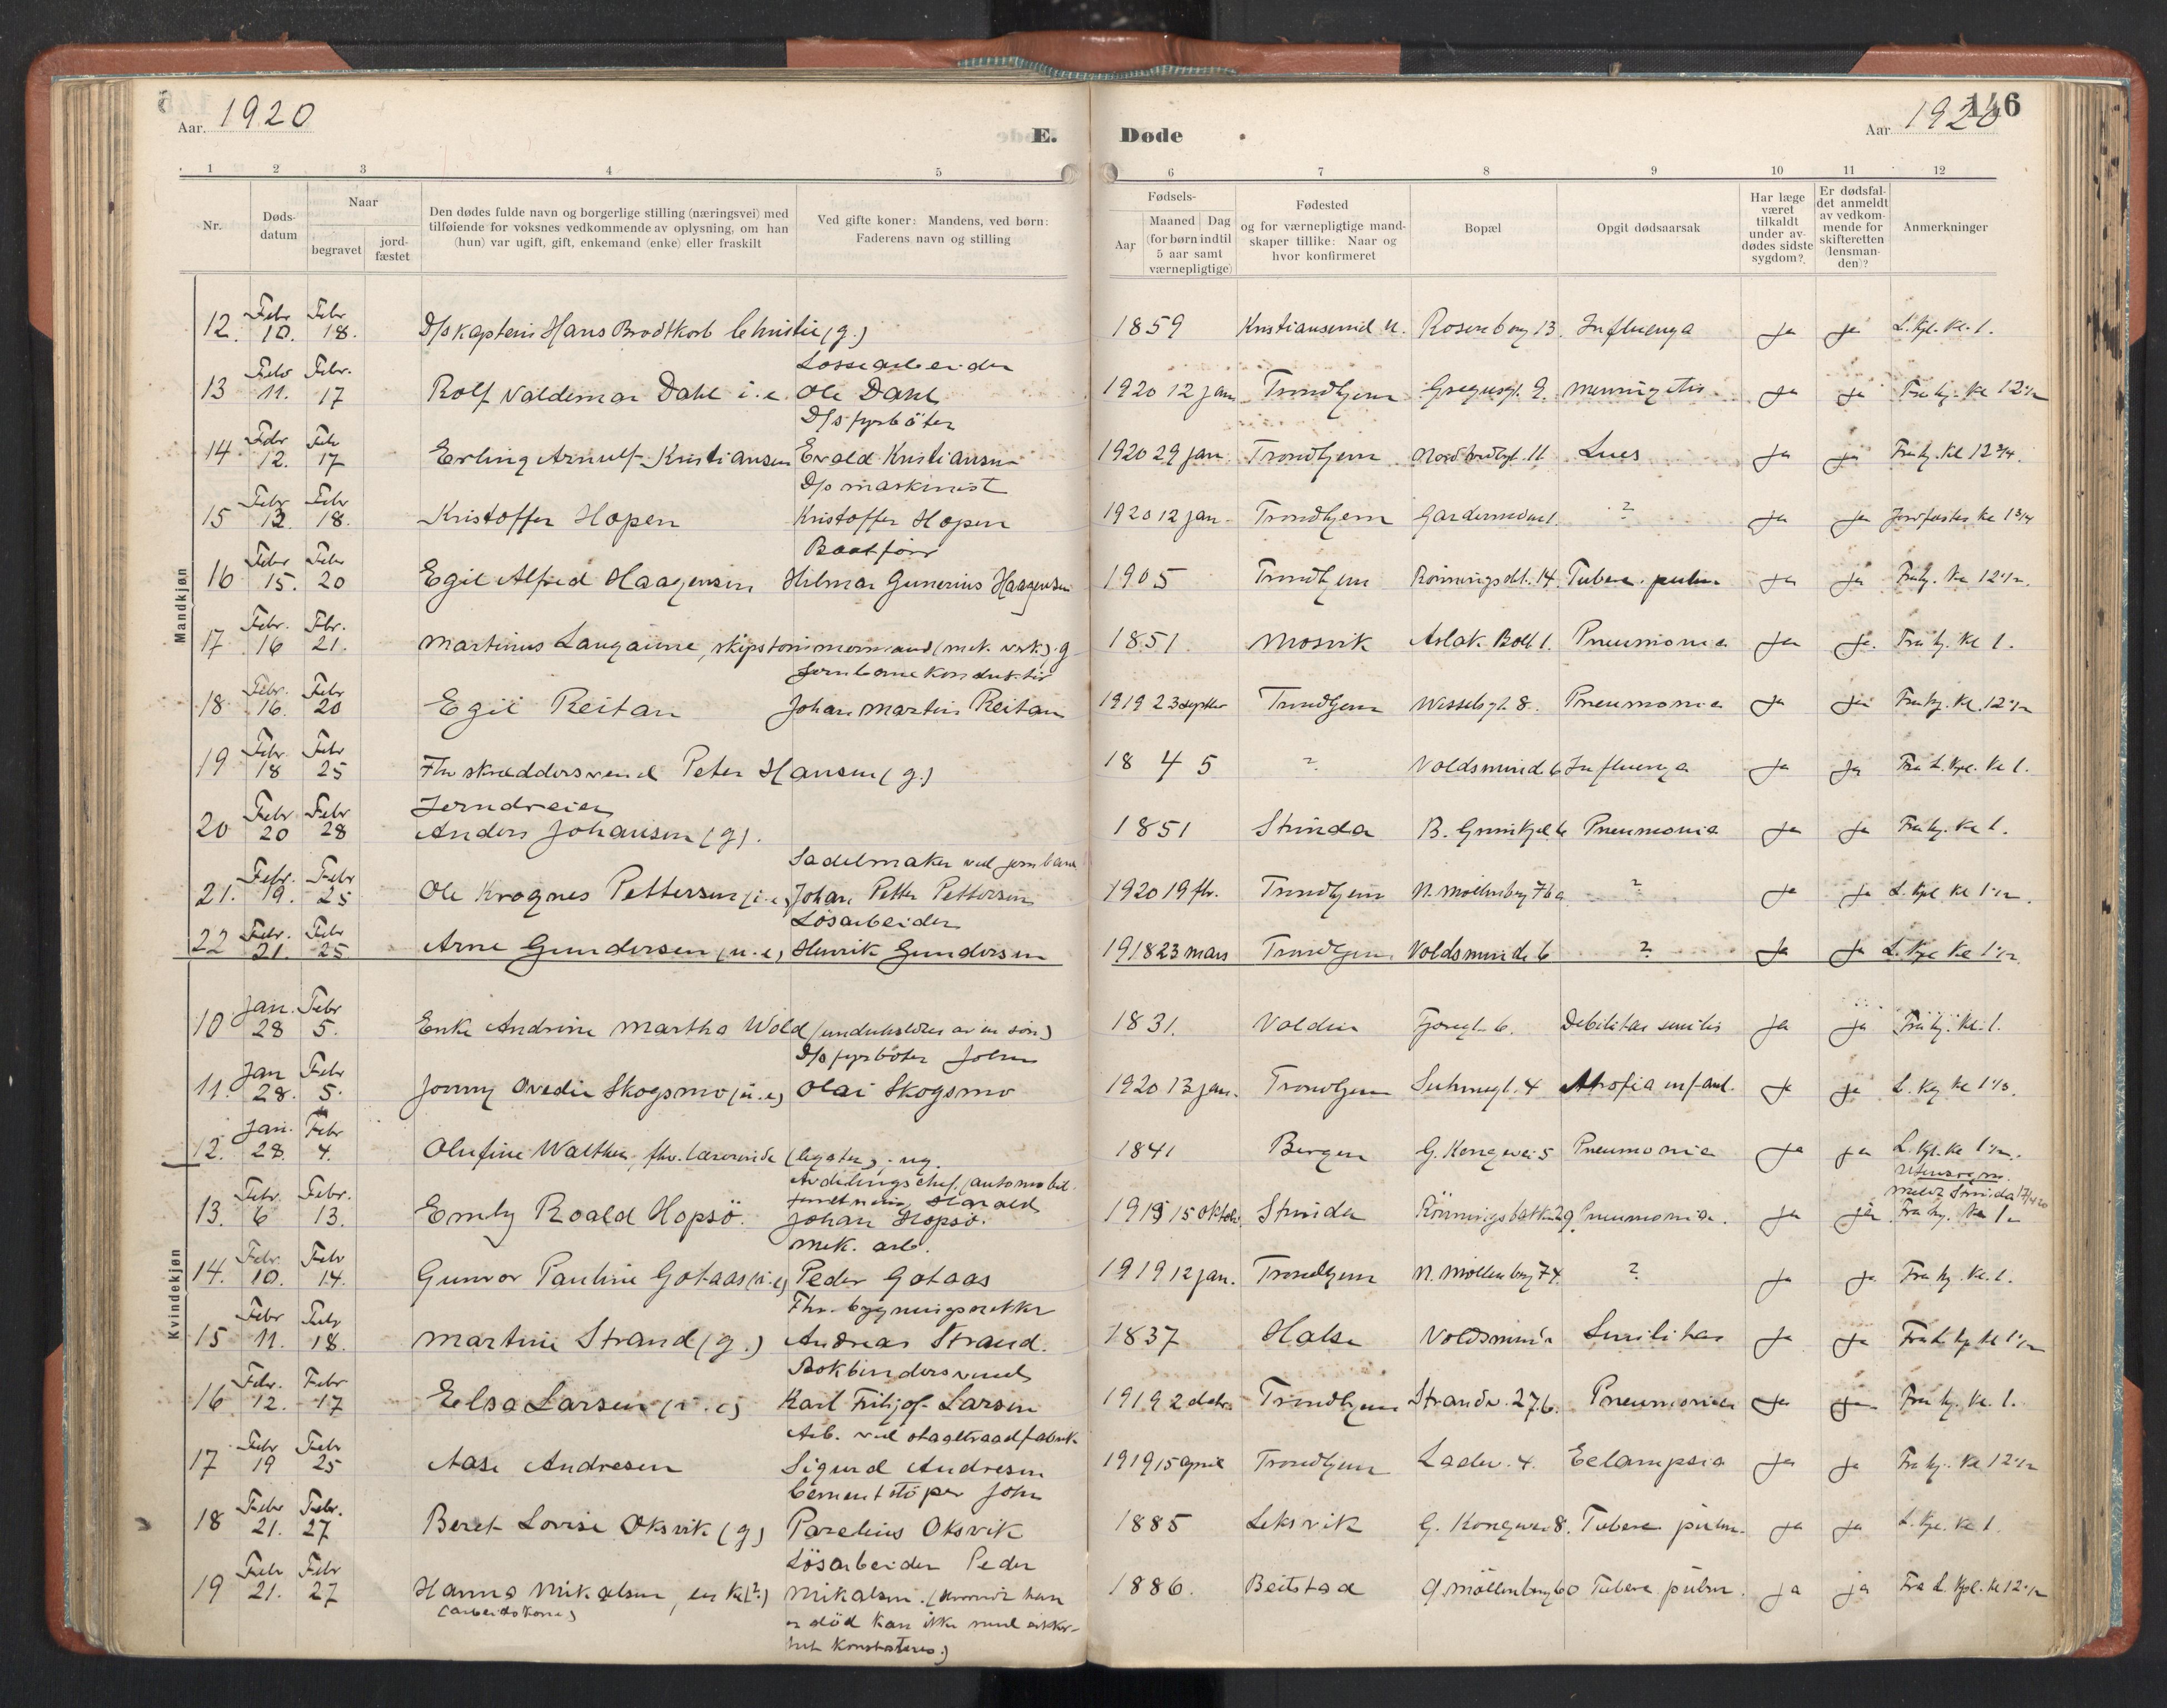 Aar. 1920 E. Døde Aar 1920 146
1 2 3 4 5 6 7 8 9 10 11 12
Nr. Døds-datum Naar begravet jord-fæstet Den dødes fulde navn og borgerlige stilling (næringsvei) med tilføiende for voksnes vedkommende av oplysning, om han (hun) var ugift, gift, enkemand (enke) eller fraskilt Ved gifte koner: Mandens, ved børn: Faderens navn og stilling Fødsels- Aar Maaned Dag (for børn indtil 5 aar samt værnepligtige) Fødested og for værnepligtige mandskaper tillike: Naar og hvor konfirmeret Bopæl Opgit dødsaarsak Har læge været tilkaldt under avdødes sidste sygdom? Er dødsfaldet anmeldt av vedkommende for skifteretten (lensmanden)? Anmerkninger
Mandkjøn
12. Febr 10. Febr 18. D/s kaptein Hans Brodtkorb Christie (g.) 1859 Kristiansund N. Rosenborg 13. Influenza Ja Ja L. Kpl. Kl. 1.
13 Febr 11. Febr. 17 Rolf Valdemar Dahl i.e. Lossearbeider Ole Dahl 1920 12 jan Trondhjem Gregusgt. 9. Meningitis Ja Ja Fra hj. Kl 12 1/2
14 Febr 12. Feb 17 Erling Arnulf Kristiansen D/s fyrbøter Evald Kristiansen 1920 29 jan. Trondhjem Lues Ja Ja Fra hj. Kl 12 3/4.
15 Febr 13. Febr 18. Kristoffer Hopen D/s maskinist Kristoffer Hopen 1920 12 jan. Trondhjem Gardemoens 1. ? Ja Ja Jordfæstes Kl 1 3/4
16 Febr 15. Febr 20 Egil Alfred Haagensen Baatfører Hilmar Gunerius Haagensen 1905 Trondhjem Rønningsbk. 14. Tuberc. pulm Ja Ja Fra hj. Kl 12 1/2.
17. Febr. 16 Febr. 21. Martinus Langaune, skipstømmermand (mek. verk.). g 1851. Mosvik Aslak Bolt 1. Pneumonia Ja Ja. Fra hj. Kl 1.
18. Febr. 16. Febr 20 Egil Reitan Jernbanekonduktør Johan Martin Reitan 1919 23 septbr Trondhjem Wesselsgt. 8. Pneumonia Ja Ja Fra hj. Kl. 12 1/2
19 Febr 18 Febr 25 Fhv skræddersvend Peter Hansen (g.) 1845 ? Voldsminde 6 Influenza Ja Ja Fra L. Kpl. Kl 1.
20 Febr 20 Febr 28 Jerndreier Anders Johansen (g). 1851 Strinda B. Grinikjel. 6 Pneumonia Ja Ja Fra hj. Kl 1.
21. Febr. 19. Febr 25 Ole Krognes Pettersen (i.e) Sadelmaker ved jernbane Johan Petter Pettersen 1920 19 fbr. Trondhjem N. Møllenberg 76 a ? Ja Ja L. Kpl Kl 1 1/2.
22 Febr. 21. Febr 25 Arne Gundersen (u.e) Løsarbeider Henrik Gundersen 1918 23 mars Trondhjem Voldsminde 6 ? Ja Ja L. Kpl Kl 1 1/2
Kvindekjøn
10 Jan. 28 Febr 5. Enke Andrine Martha Wold (underholdtes av en søn) 1831. Volden Fjordgt. 6. Debilitas senilis Ja Ja Fra hj. Kl. 1.
11. Jan 28. Febr 5. Jonny Ovedie Skogsmo (u.e) D/s fyrbøter Johan Olai Skogsmo 1920 13 jan. Trondhjem Suhmsgt. 4 Atrofia infant. Ja Ja L. Kp Kl 1 1/2.
12. Jan. 28. Febr 4. Olufine Walther, fhv. lærerinde (legater). ug. 1841 Bergen G. Kongevei 5 Pneumonia Ja Ja L. Kpl. Kl 1 1/2.
13. Febr. 6 Febr. 13. Emly Roald Hopsø. Avdelingschef automobilforretning Harald Johan Hopsø. 1919 15 oktob Strinda Rønningsbakken 29. Pneumonia. Ja Ja Utensogns. Meldt Strinda 17/4 20 Fra hj. Kl 1.
14. Febr. 10. Febr 14. Gunvor Pauline Gotaas (u.e) Mek. arb. Peder Gotaas 1919 12 jan. Trondhjem N. Møllenberg 74 ? Ja Ja Fra hj. Kl. 1.
15 Febr 11. Febr 18. Martine Strand (g.) Fhv. bygningssnekker Andreas Strand. 1837 Halse Voldsminde Senilitas Ja Ja Fra L. Kp Kl 1 1/2
16 Febr. 12. Febr 17 Elsa Larsen (i.e) Bokbindersvend Karl Fritjof Larsen 1919 2 debr. Trondhjem Strandv. 27 b. Pneumonia Ja Ja Fra hj. Kl. 1.
17 Febr 19 Febr 25 Aase Andresen Arb. ved staaltraadfabrik Sigurd Andresen 1919 15 april Trondhjem Ladev. 4. Eclampsia Ja Ja Fra hj. Kl 12 1/2
18 Febr 21. Febr. 27. Beret Lovise Oksvik (g) Cementstøper John Parelius Oksvik 1885 Leksvik G. Kongevei 8. Tuberc. pulm. Ja Ja L. Kpl. Kl 1.
19 Febr 21. Febr 27 Hanna Mikalsen, enke (?) (arbeidskone) Løsarbeider Peder Mikalsen. (Hvorvidt han er død kan ikke med sikkerhet konstateres.) 1886. Beitstad N. Møllenberg 60 Tuberc. pulm. Ja Ja Fra L. Kpl. Kl 12 1/2